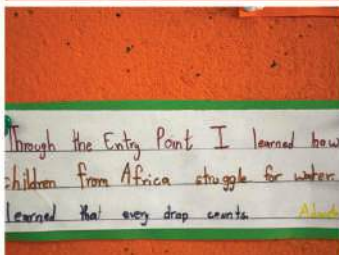 Through the Entry Point I learned how
children from Africa struggle for water.
learned that every drop counts.